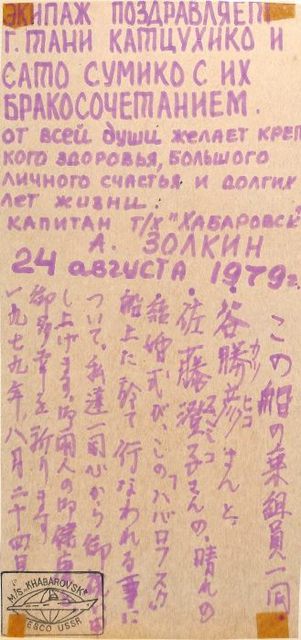 ЭКИПАЖ ПОЗДРАВЛЯЕТ
Г. ТАНИ КАТЦУХИКО И
САТО СУМИКО С ИХ
БРАКОСОЧЕТАНИЕМ.
ОТ ВСЕЙ ДУШИ ЖЕЛАЕТ КРЕП
КОГО ЗДОРОВЬЯ, БОЛЬШОГО
ЛИЧНОГО СЧАСТЬЯ И ДОЛГИХ
ЛЕТ ЖИЗНИ.
КАПИТАН Т/Х "ХАБАРОВСК
А. ЗОЛКИН
24 августа 1979г.
この船の乗組員一同
谷勝彦さんと
カツヒコ
佐藤澄子さんの、晴れの
スミコ
結婚式が、この「ハバロフスク」
船上に於て行なわれる事に
ついて、私達一同心から御
し上げます。御両人の御健
御多幸を祈ります
一九七九年八月二十四日
M/S "KHABAROVSK"
FESCO USSR